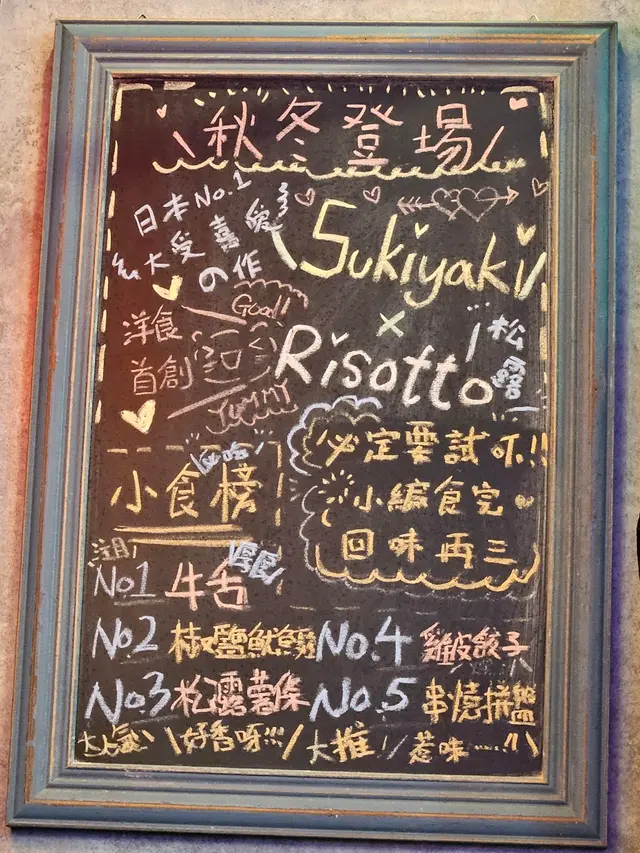 秋冬登場
日本No.1
大受喜愛
の作
Sukiyaki
×
Risotto
松露
洋食
首創
Good!
YUMMY
必定要試吓!!
小編食完
回味再三
小食榜
No.1 牛舌
厚切
No.2 椒鹽魷鬚
No.3 松露薯條
No.4 雞皮餃子
No.5 串燒拼盤
大人氣
好香呀!!!
大推!!
惹味……!!